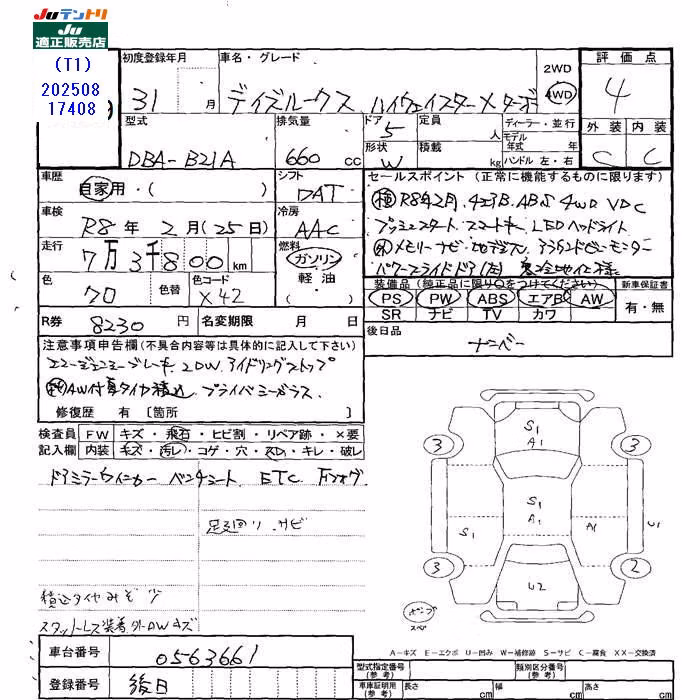 JUテントリ
JU
適正販売店
(T1)
202508
17408
初度登録年月
31 月
車名・グレード
デイズルークス ハイウェイスターX ターボ
2WD
4WD
評価点
4
外装 内装
C C
型式
DBA-B21A
排気量
660 cc
ドア 5
形状 W
定員 人
積載 kg
ディーラー・並行
モデル年式 年式
ハンドル 左・右
車歴
自家用・( )
シフト
DAT
車検
R8年 2月(25日)
冷房
AAC
走行
7万3千800km
燃料
ガソリン
軽油
( )
色
プロ
色替
色コード
X42
R券 8230円
名変期限 月 日
セールスポイント(正常に機能するものに限ります)
R8年2月 4エアB ABS 4WD VDC
プッシュスタート スマートキー LEDヘッドライト
メモリーナビ 地デジTV アラウンドビューモニター
パワースライドドア(左)
装備品(純正品に限り○をつけてください)
新車保証書
PS PW ABS エアB AW
SR ナビ TV カワ
有・無
後日品
ナンバー
注意事項申告欄(不具合内容等は具体的に記入して下さい)
エマージェンシーブレーキ 2DW アイドリングストップ
AW付夏タイヤ積込 プライバシーガラス
修復歴 有 〔箇所 〕
検査員 FW キズ・飛石・ヒビ割・リペア跡・×要
記入欄 内装 キズ・汚レ・コゲ・穴・スレ・キレ・破レ
ドアミラーウインカー ベンチシート ETC Fフォグ
足廻り サビ
積込タイヤみぞ少
スタットレス装着 外DWキズ
S1
A1
3 3
S1
A1
S1 A1 U1
3 2
U2
ポンプ
スペ
A-キズ E-エクボ U-凹み W-補修跡 S-サビ C-腐食 XX-交換済
車台番号
0563661
登録番号
後日
型式指定番号
(参考)
類別区分番号
(参考)
車庫証明用
(参考)
長さ cm 幅 cm 高さ cm